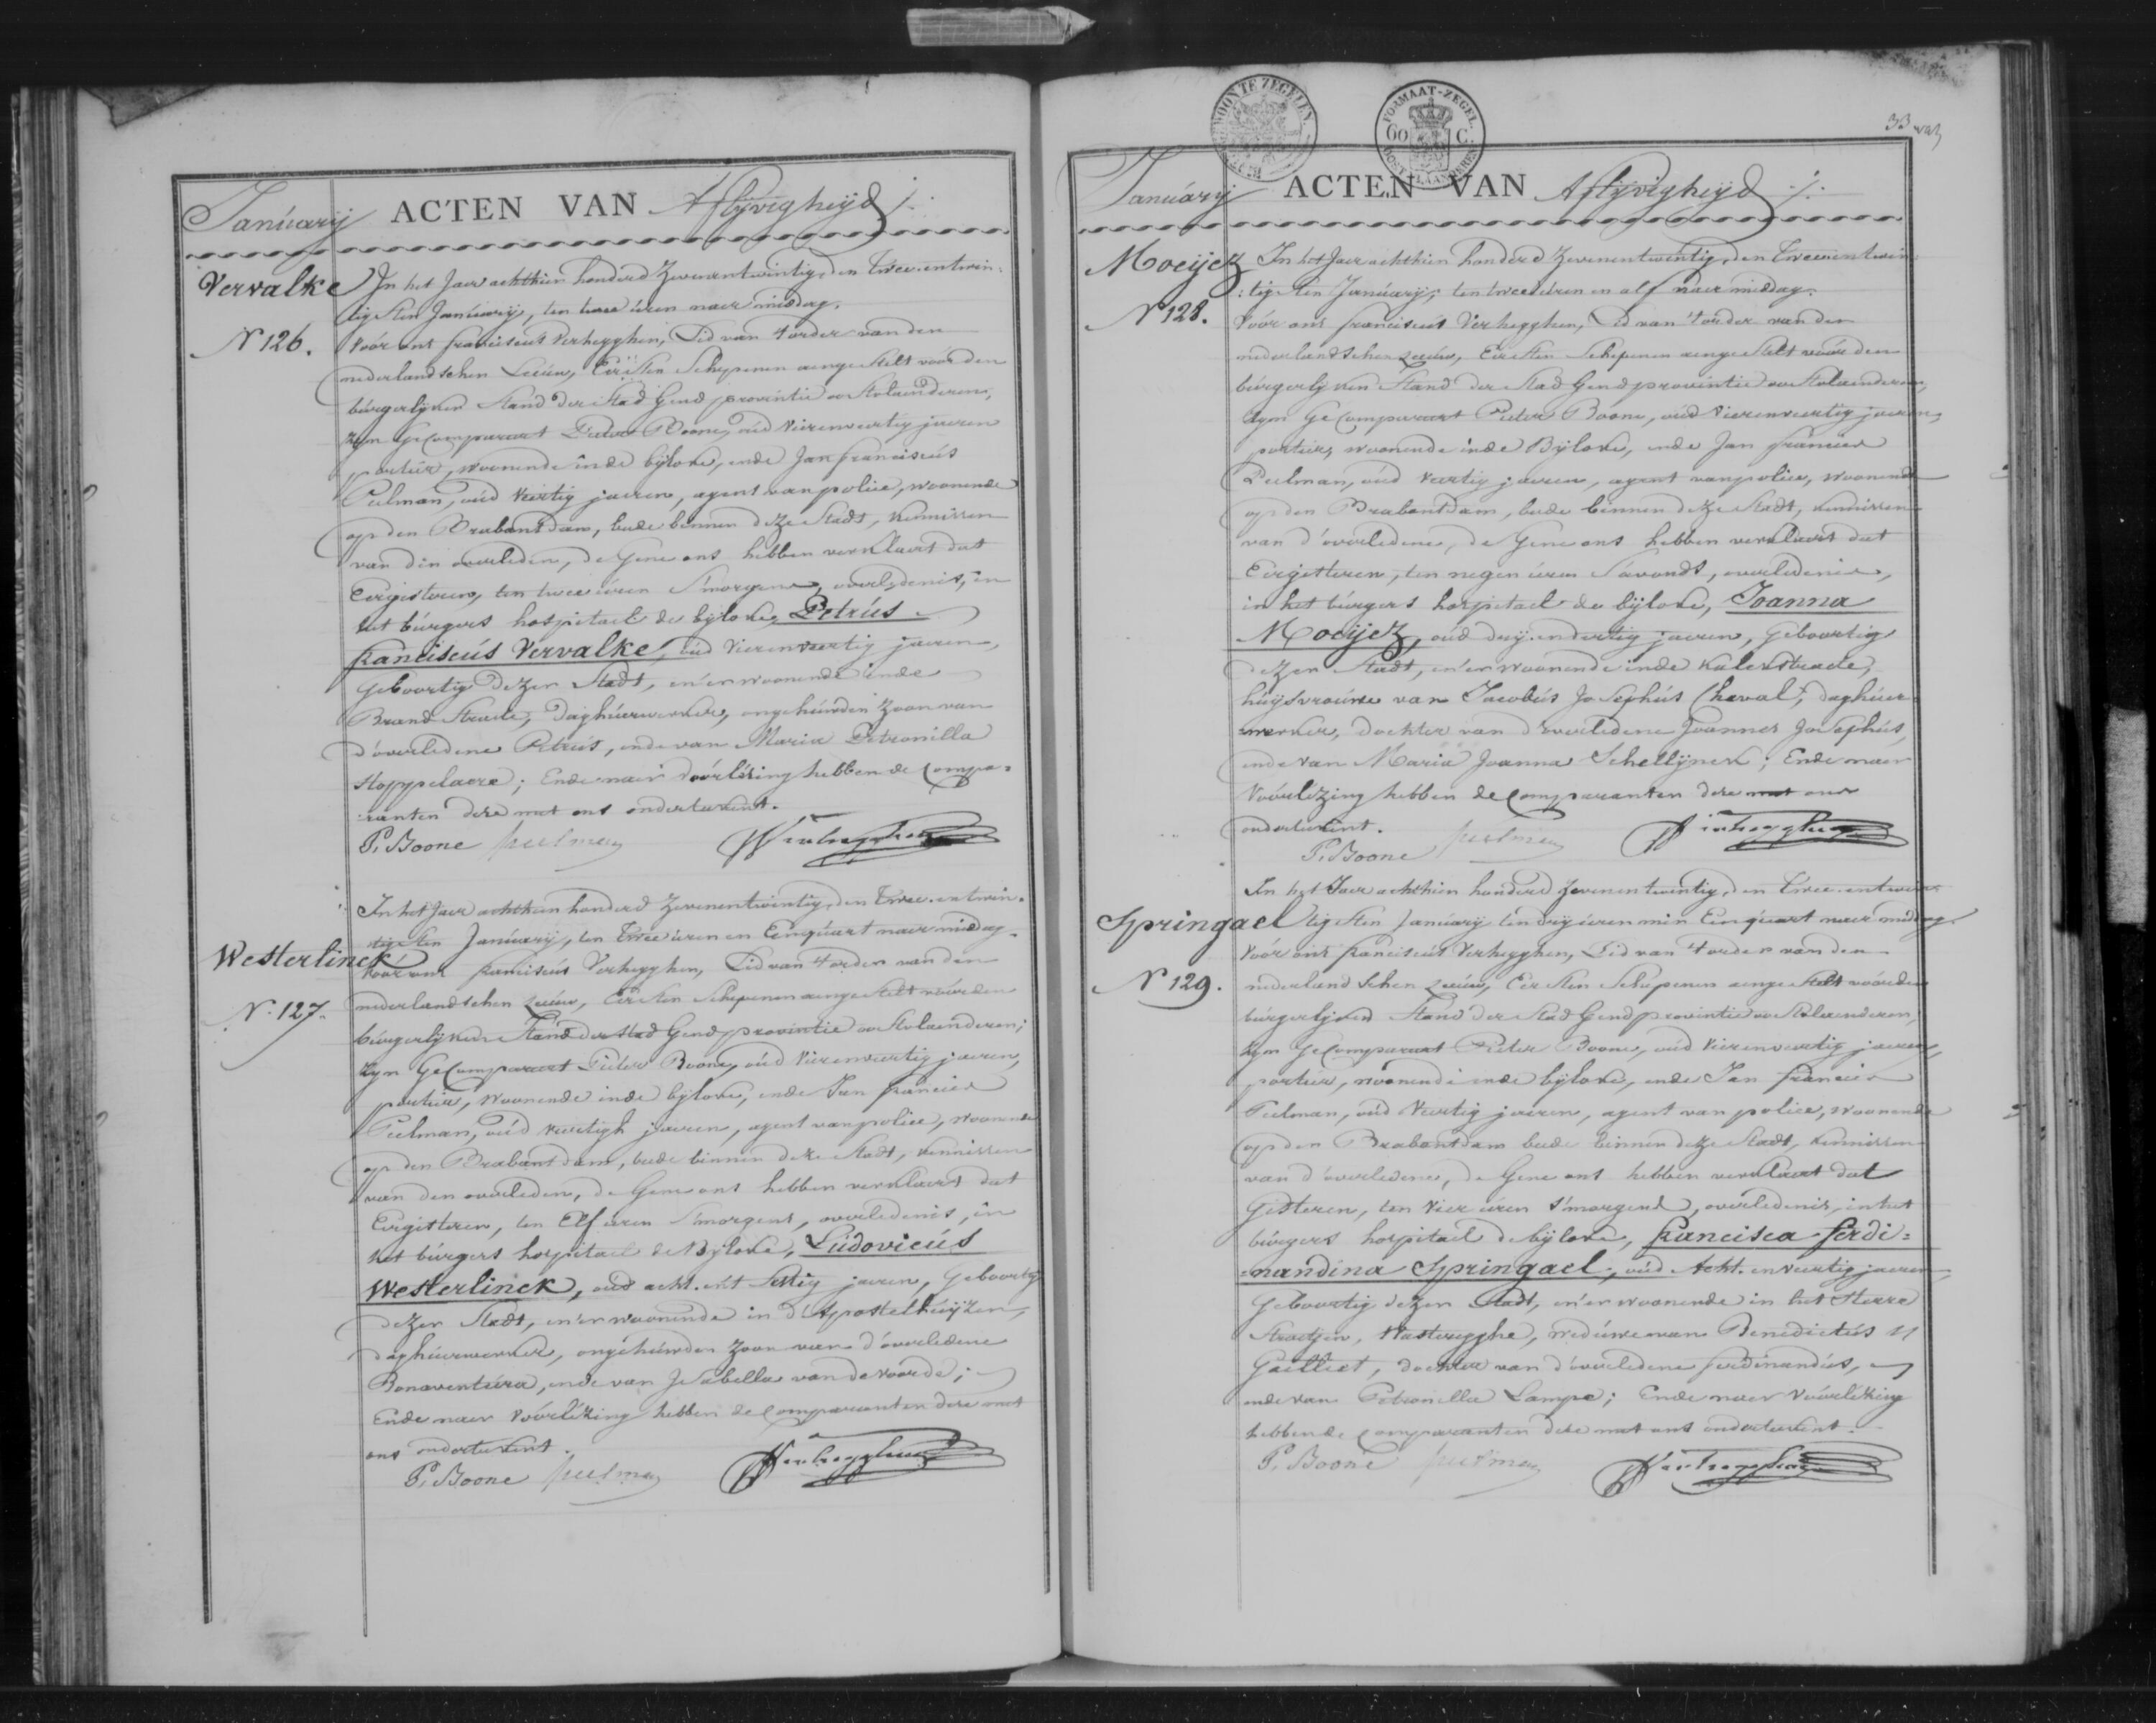 Januarij ACTEN VAN Aflijvigheijd /.
Vervalke
N 126.
In het Jaer achthien honderd Zevenentwintig, den twee-entwin-
tigsten Januarij, ten twee üren naer middag.
Vóór ons franciscüs Verhegghen, Lid van 't order van den
nederlandschen Leeüw, Eersten Schepenen aengestelt vóór den
bürgerlijken Stand der Stad Gend provintie oostvlaenderen,
zyn Gecomparaert Pieter Boone, oüd Vierenveertig jaeren
portier, woonende inde bijloke, ende Jan franciscüs
Peelman, oüd Veertig jaeren, agent van police, woonende
op den Brabantdam, beide binnen deze Stadt, kennissen
van den overleden, de Gene ons hebben verklaert dat
Eergisteren, ten twee üren S'morgens, overledenis, in
het bürgers hospitael de bijloke, Petrüs
franciscüs Vervalke, oüd Vierenveertig jaeren,
Geboortig dezer Stadt, en'er woonende inde
Brand Straete, Daghüerwerker, ongehüwden Zoon van
d'overledene Petrüs, ende van Maria Petronilla
Stoppelaere; Ende naer Vóórlézing hebben de Compa-
ranten deze met ons onderteekent.
P. Boone Peelman Verhegghen
Westerlinck
N. 127.
In het Jaer achthien honderd Zevenentwintig, den Twee-entwin-
tigsten Januarij, ten Twee üren en Eenquart naer middag.
Vóór ons franciscüs Verhegghen, Lid van 't order van den
nederlandschen Leeüw, Eersten Schepenen aengestelt vóór den
bürgerlijken Stand der Stad Gend provintie oostvlaenderen;
zyn GeComparaert Pieter Boone, oüd Vierenveertig jaeren,
portier, woonende inde bijloke, ende Jan francies
Peelman, oüd veertigh jaeren, agent van police, woonende
op den Brabantdam, beide binnen deze Stadt, kennissen
van den overleden, de Gene ons hebben verklaert dat
Eergisteren, ten Elf üren S'morgens, overledenis, in
het bürgers hospitael de Bijloke, Lüdovicüs
Westerlinck, oüd acht-ent Sestig jaeren, Geboortig
dezer Stadt, en'er woonende in d'Apostelhüijzen,
daghüerwerker, ongehüwden Zoon van d'overledene
Bonaventüra, ende van Isabella van de Voorde;
Ende naer Vóórlézing hebben de Comparanten deze met
ons onderteekent.
P. Boone Peelman Verhegghen
FORMAAT-ZEGEL
60 C.
33
Januarij ACTEN VAN Aflijvigheijd /.
Moeijez
N 128.
In het Jaer achthien honderd Zevenentwintig, den Tweeentwin-
tigsten Januarij; ten twee üren en alf naer middag.
Vóór ons franciscüs Verhegghen, Lid van 't order van den
nederlandschen Leeüw, Eersten Schepenen aengestelt vóór den
bürgerlijken Stand der Stad Gend provintie oostvlaenderen,
zyn GeComparaert Pieter Boone, oüd Vierenveertig jaeren,
portier, woonende inde Bijloke, ende Jan francies
Peelman, oüd Veertig jaeren, agent van police, woonende
op den Brabantdam, beide binnen deze Stadt, kennissen
van d'overledene, de Gene ons hebben verklaert dat
Eergisteren, ten negen üren S'avonds, overledenis,
in het bürgers hospitael de bijloke, Joanna
Moeijez, oüd drij-endertig jaeren, Geboortig
dezer Stadt, en'er woonende inde Kalverstraete,
hüijsvroüwe van Jacobüs Josephüs Cheval, daghüer-
werker, dochter van d'overledene Joannes Josephüs,
ende van Maria Joanna Schellijnck; Ende naer
Vóórlézing hebben de Comparanten deze met ons
onderteekent.
P. Boone Peelman Verhegghen
Springael
N 129.
In het Jaer achthien honderd Zevenentwintig, den Twee-entwin-
tigsten Januarij ten drij üren min Eenquart naer middag.
Vóór ons franciscüs Verhegghen, Lid van 't order van den
nederlandschen Leeüw, Eersten Schepenen aengestelt vóór den
bürgerlijken Stand der Stad Gend provintie oostvlaenderen,
zyn GeComparaert Pieter Boone, oüd Vierenveertig jaeren,
portier, woonende inde bijloke, ende Jan francies
Peelman, oüd Veertig jaeren, agent van police, woonende
op den Brabantdam beide binnen deze Stadt, kennissen
van d'overledene, de Gene ons hebben verklaert dat
Gisteren, ten Vier üren S'morgens, overledenis, in het
bürgers hospitael de bijloke, francisca ferdi-
nandina Springael, oüd Acht-enveertig jaeren,
Geboortig dezer Stadt, en'er woonende in het Sterre
Straetjen, Vastvegghe, wedüwe van Benedictüs
Gaelliet, dochter van d'overledene ferdinandüs,
ende van Petronella Lampe; Ende naer Vóórlézing
hebben de Comparanten deze met ons onderteekent.
P. Boone Peelman Verhegghen